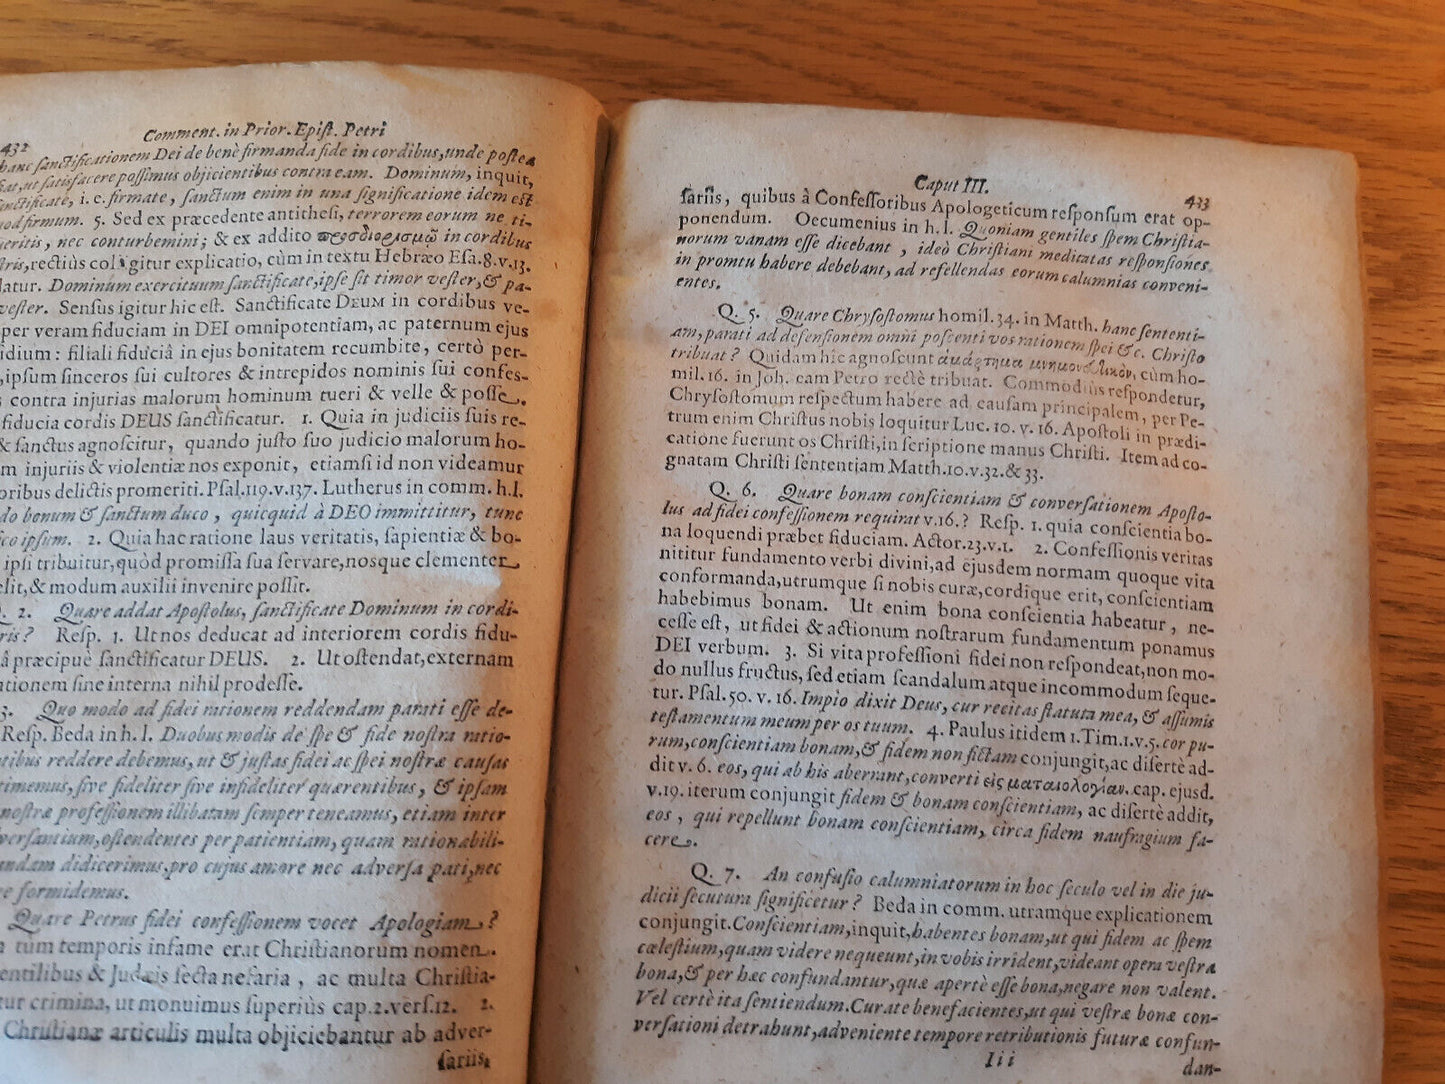 432
Comment. in Prior. Epiſt. Petri
hanc ſanctificationem Dei de benè firmanda fide in cordibus, unde poſtea
ſatisfacere poſſimus objicientibus contra eam. Dominum, inquit,
ſanctificate, i. e. firmate, ſanctum enim in una ſignificatione idem eſt
quod firmum. 5. Sed ex præcedente antitheſi, terrorem eorum ne ti-
nec conturbemini; & ex addito προσδιορισμῷ in cordibus
rectiùs colligitur explicatio, cùm in textu Hebræo Eſa. 8. v. 13.
latur. Dominum exercituum ſanctificate, ipſe ſit timor veſter, & pa-
veſter. Senſus igitur hic eſt. Sanctificate DEUM in cordibus ve-
per veram fiduciam in DEI omnipotentiam, ac paternum ejus
idium: filiali fiduciâ in ejus bonitatem recumbite, certò per-
, ipſum ſinceros ſui cultores & intrepidos nominis ſui confeſ-
s contra injurias malorum hominum tueri & velle & poſſe.
fiducia cordis DEUS ſanctificatur. 1. Quia in judiciis ſuis re-
& ſanctus agnoſcitur, quando juſto ſuo judicio malorum ho-
m injuriis & violentiæ nos exponit, etiamſi id non videamur
oribus delictis promeriti. Pſal. 119. v. 137. Lutherus in comm. h. l.
do bonum & ſanctum duco, quicquid à DEO immittitur, tunc
ico ipſum. 2. Quia hac ratione laus veritatis, ſapientiæ & bo-
ipſi tribuitur, quòd promiſſa ſua ſervare, nosque clementer
elit, & modum auxilii invenire poſſit.
Q. 2. Quare addat Apoſtolus, ſanctificate Dominum in cordi-
ris? Reſp. 1. Ut nos deducat ad interiorem cordis fidu-
â præcipuè ſanctificatur DEUS. 2. Ut oſtendat, externam
ationem ſine interna nihil prodeſſe.
3. Quo modo ad fidei rationem reddendam parati eſſe de-
Reſp. Beda in h. l. Duobus modis de ſpe & fide noſtra ratio-
tibus reddere debemus, ut & juſtas fidei ac ſpei noſtræ cauſas
timemus, ſive fideliter ſive infideliter quærentibus, & ipſam
noſtræ profeſſionem illibatam ſemper teneamus, etiam inter
verſantium, oſtendentes per patientiam, quam rationabili-
andam didicerimus, pro cujus amore nec adverſa pati, nec
re formidemus.
Quare Petrus fidei confeſſionem vocet Apologiam?
a tùm temporis infame erat Chriſtianorum nomen
entilibus & Judæis ſecta nefaria, ac multa Chriſtia-
tur crimina, ut monuimus ſuperiùs cap. 2. verſ. 12. 2.
Chriſtianæ articulis multa objiciebantur ab adver-
ſariis,
Caput III.
433
ſariis, quibus à Confeſſoribus Apologeticum reſponſum erat op-
ponendum. Oecumenius in h. l. Quoniam gentiles ſpem Chriſtia-
norum vanam eſſe dicebant, ideò Chriſtiani meditatas reſponſiones
in promtu habere debebant, ad refellendas eorum calumnias conveni-
entes.
Q. 5. Quare Chryſoſtomus homil. 34. in Matth. hanc ſententi-
am, parati ad defenſionem omni poſcenti vos rationem ſpei &c. Chriſto
tribuat? Quidam hic agnoſcunt ἁμάρτημα μνημονευτικόν, cùm ho-
mil. 16. in Joh. eam Petro rectè tribuat. Commodiùs reſpondetur,
Chryſoſtomum reſpectum habere ad cauſam principalem, per Pe-
trum enim Chriſtus nobis loquitur Luc. 10. v. 16. Apoſtoli in prædi-
catione fuerunt os Chriſti, in ſcriptione manus Chriſti. Item ad co-
gnatam Chriſti ſententiam Matth. 10. v. 32. & 33.
Q. 6. Quare bonam conſcientiam & converſationem Apoſto-
lus ad fidei confeſſionem requirat v. 16.? Reſp. 1. quia conſcientia bo-
na loquendi præbet fiduciam. Actor. 23. v. 1. 2. Confeſſionis veritas
nititur fundamento verbi divini, ad ejusdem normam quoque vita
conformanda, utrumque ſi nobis curæ, cordique erit, conſcientiam
habebimus bonam. Ut enim bona conſcientia habeatur, ne-
ceſſe eſt, ut fidei & actionum noſtrarum fundamentum ponamus
DEI verbum. 3. Si vita profeſſioni fidei non reſpondeat, non mo-
do nullus fructus, ſed etiam ſcandalum atque incommodum ſeque-
tur. Pſal. 50. v. 16. Impio dixit Deus, cur recitas ſtatuta mea, & aſſumis
teſtamentum meum per os tuum. 4. Paulus itidem 1. Tim. 1. v. 5. cor pu-
rum, conſcientiam bonam, & fidem non fictam conjungit, ac diſertè ad-
dit v. 6. eos, qui ab his aberrant, converti εἰς ματαιολογίαν. cap. ejusd.
v. 19. iterum conjungit fidem & bonam conſcientiam, ac diſertè addit,
eos, qui repellunt bonam conſcientiam, circa fidem naufragium fa-
cere.
Q. 7. An confuſio calumniatorum in hoc ſeculo vel in die ju-
dicii ſecutura ſignificetur? Beda in comm. utramque explicationem
conjungit. Conſcientiam, inquit, habentes bonam, ut qui fidem ac ſpem
cæleſtium, quam videre nequeunt, in vobis irrident, videant opera veſtra
bona, & per hæc confundantur, quæ apertè eſſe bona, negare non valent.
Vel certè ita ſentiendum. Curate benefacientes, ut qui veſtræ bonæ con-
verſationi detrahunt, adveniente tempore retributionis futuræ confun-
Iii
dan-